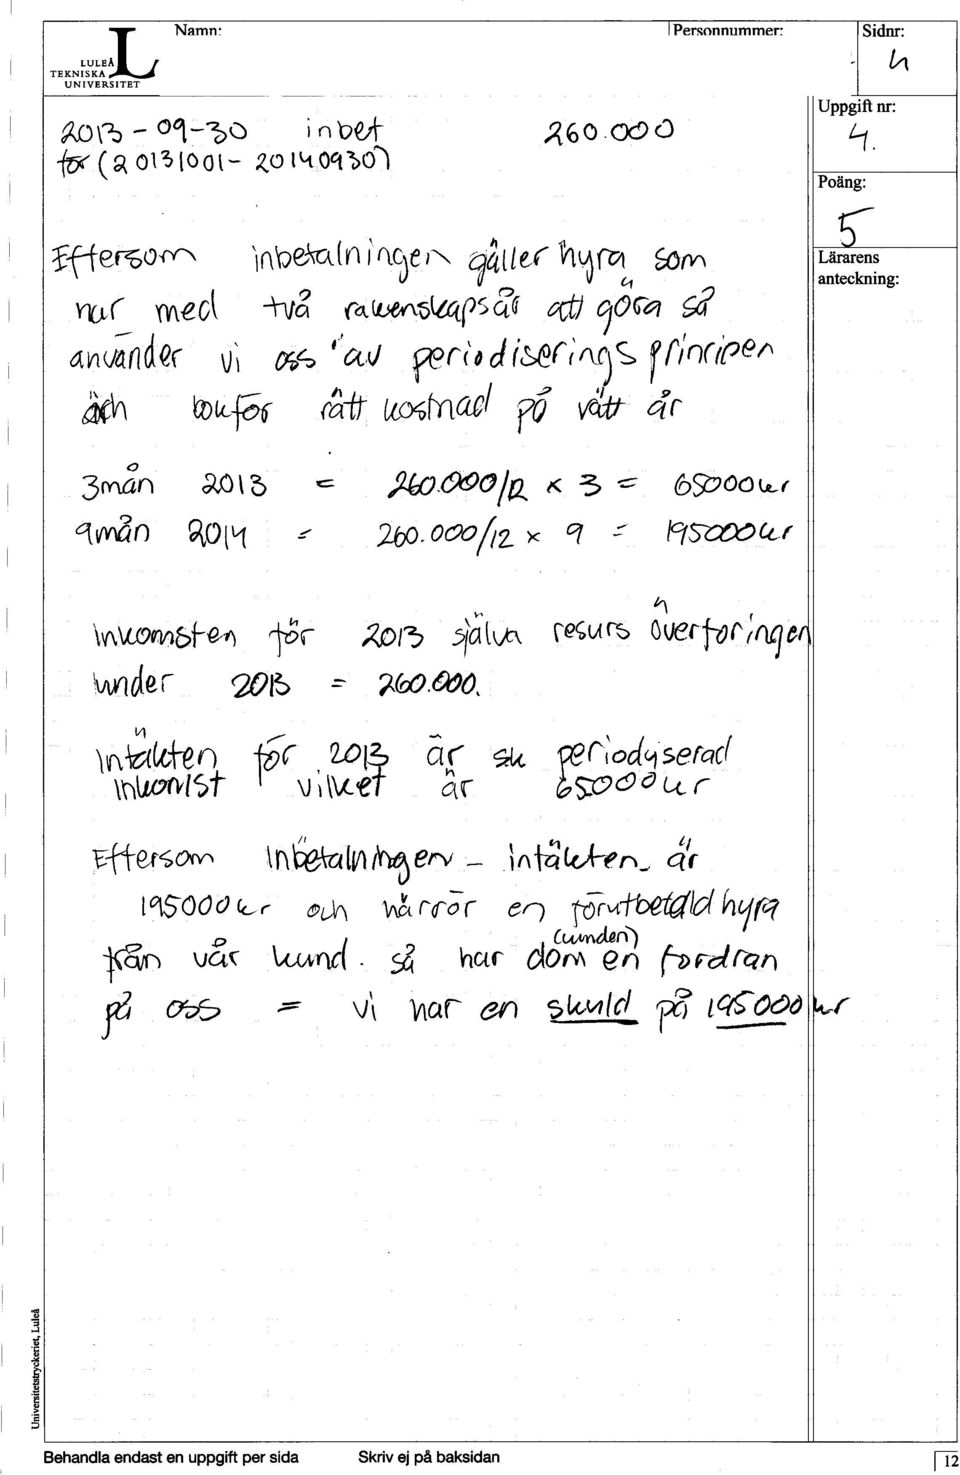 Namn:
Personnummer:
Sidnr:
LULEÅ
TEKNISKA
UNIVERSITET
4
Uppgift nr:
4.
Poäng:
5
Lärarens
anteckning:
2013-09-30 inbet 260.000
för (20131001-20140930)
Eftersom inbetalningen gäller hyra som
har med två räkenskapsår att göra så
använder vi oss av periodiserings principen
och bokför rätt kostnad på rätt år
3mån 2013 = 260.000/12 x 3 = 65000kr
9mån 2014 = 260.000/12 x 9 = 195000kr
Inkomsten för 2013 själva resurs överföringen
under 2013 = 260.000.
Intäkten för 2013 är sk periodyserad
inkomst vilket är 65000kr
Eftersom inbetalningen - intäkten är
195000kr och härrör en förutbetald hyra
från vår kund. så har dom (kunden) en fordran
på oss = vi har en skuld på 195000 kr
Universitetstryckeriet, Luleå
Behandla endast en uppgift per sida Skriv ej på baksidan
12